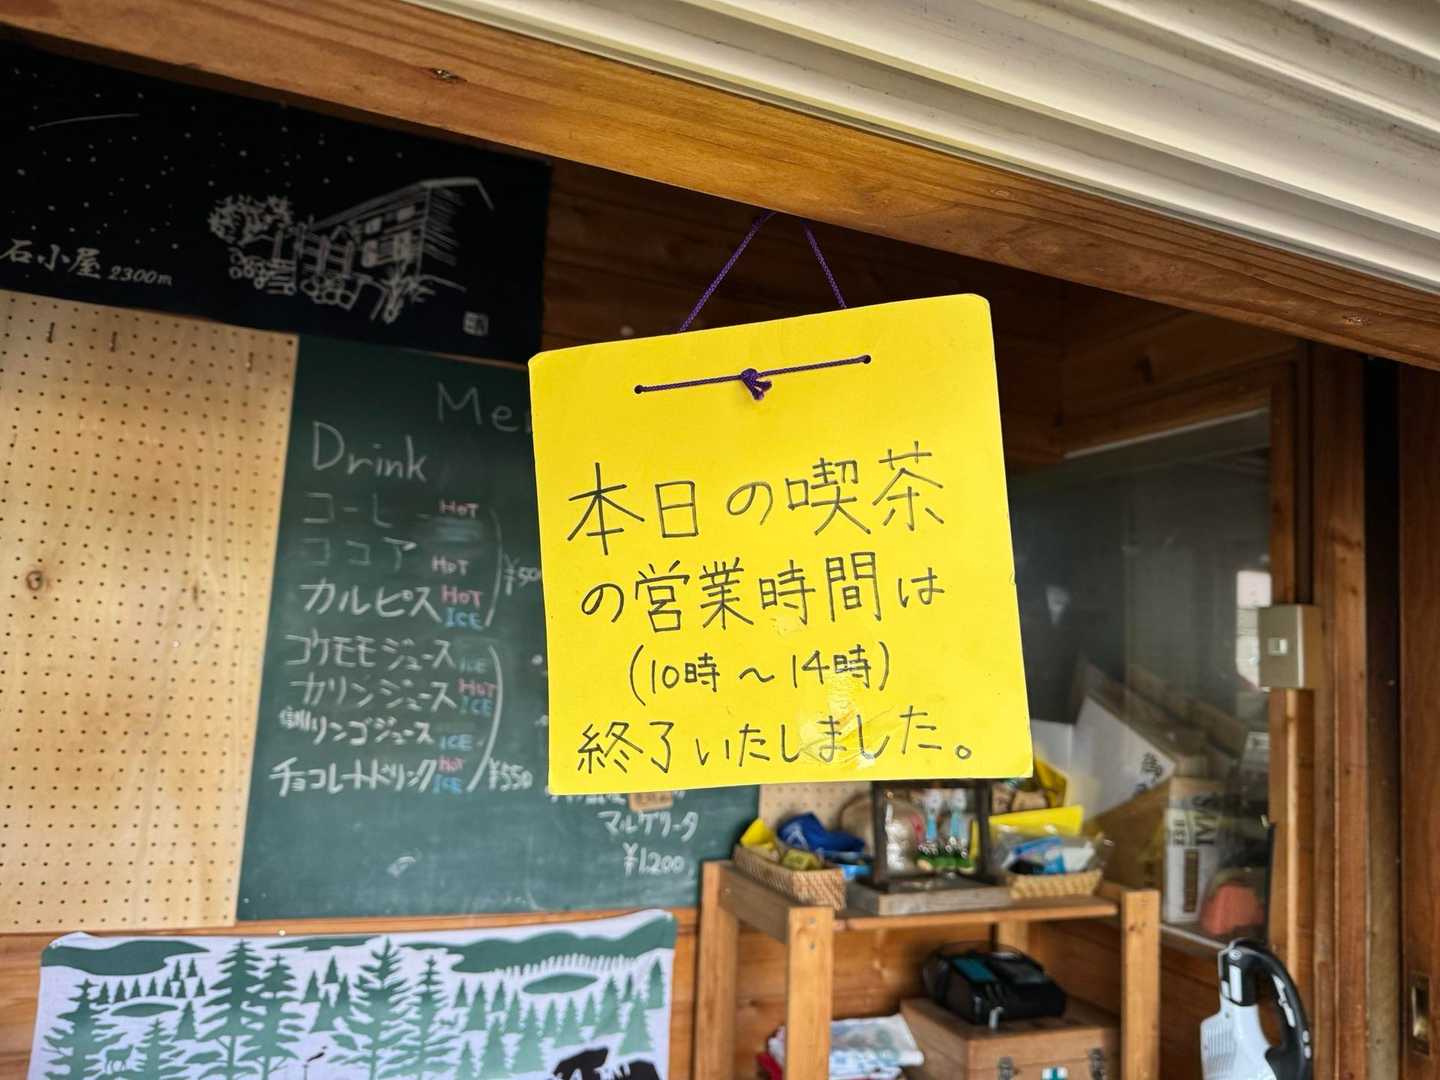 石小屋 2300m
Me
Drink
コーヒー HOT
ココア HOT
¥50
カルピス HOT ICE
コケモモジュース ICE
カリンジュース HOT ICE
信州リンゴジュース ICE
チョコレートドリンク HOT ICE ¥550
マルゲリータ
¥1,200
本日の喫茶
の営業時間は
(10時～14時)
終了いたしました。